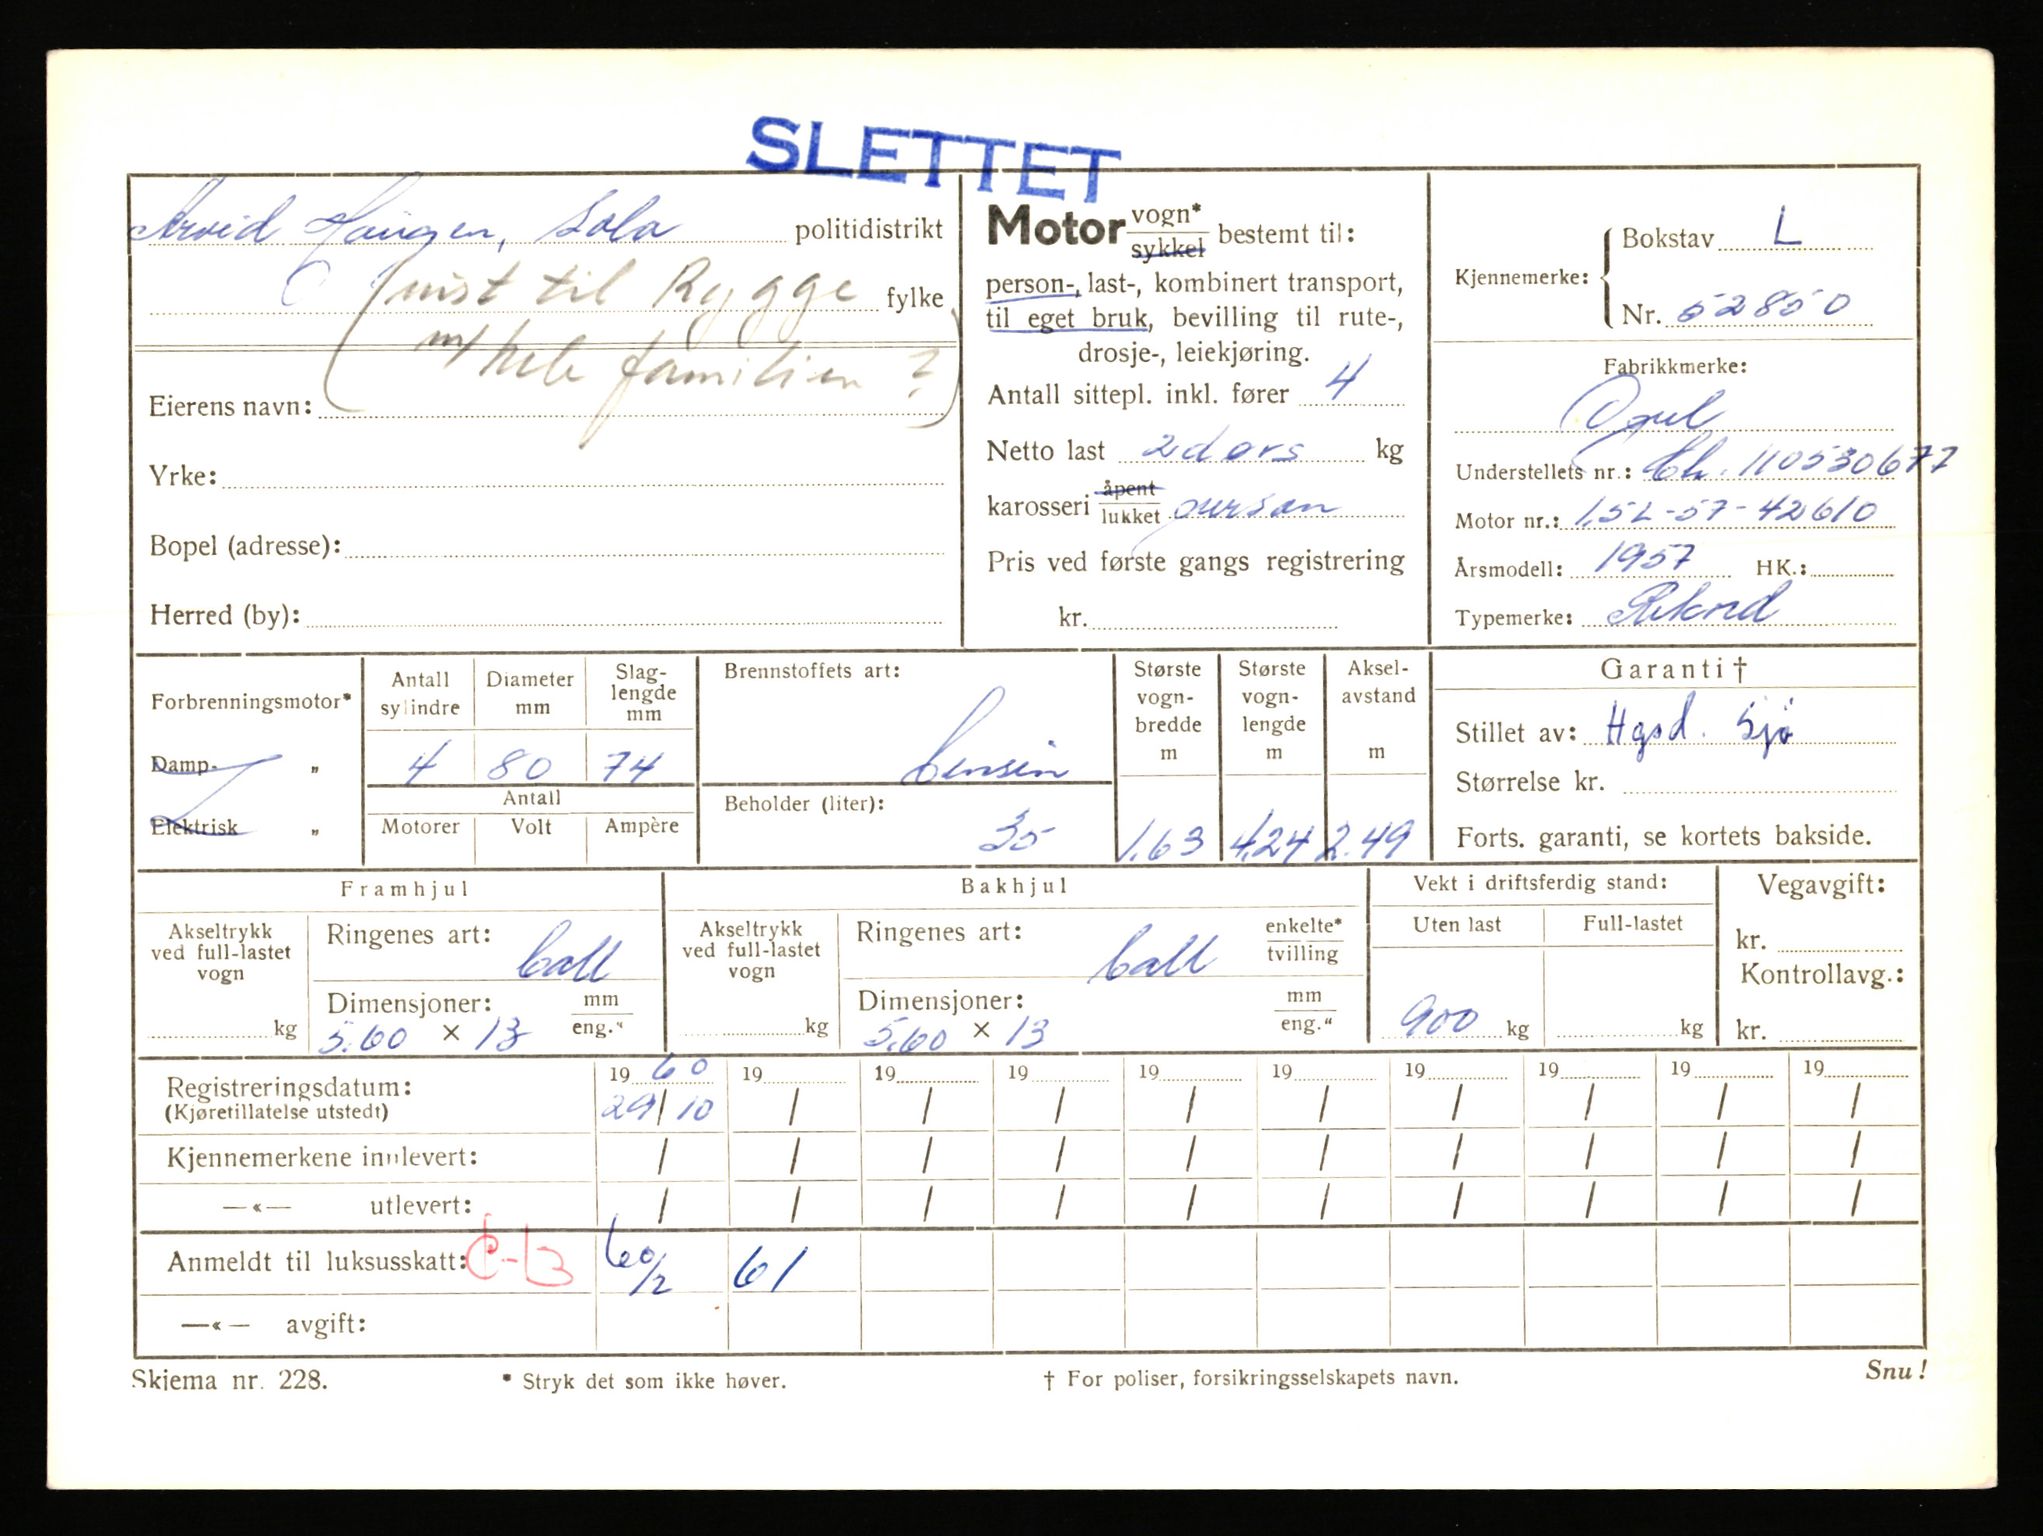 SLETTET
Arvid Haugen, Sola politidistrikt
(mist til Rygge fylke
m/hele familien ?)
Eierens navn:
Yrke:
Bopel (adresse):
Herred (by):
Motor vogn* sykkel bestemt til:
person-, last-, kombinert transport,
til eget bruk, bevilling til rute-,
drosje-, leiekjøring.
Antall sittepl. inkl. fører 4
Netto last 2 dørs kg
karosseri åpent lukket person
Pris ved første gangs registrering
kr.
Kjennemerke: Bokstav L
Nr. 52850
Fabrikkmerke:
Opel
Understellets nr.: Ch. 110530677
Motor nr.: 1,5L-57-42610
Årsmodell: 1957 HK.:
Typemerke: Rekord
Forbrenningsmotor*
Damp- "
Elektrisk "
Antall sylindre Diameter mm Slaglengde mm
4 80 74
Antall
Motorer Volt Ampère
Brennstoffets art:
bensin
Beholder (liter):
35
Største vogn-bredde m Største vogn-lengde m Aksel-avstand m
1,63 4,24 2.49
Garanti †
Stillet av: Hgsd. Sjø
Størrelse kr.
Forts. garanti, se kortets bakside.
Framhjul
Akseltrykk ved full-lastet vogn
kg
Ringenes art: ball
Dimensjoner: mm eng."
5.60 × 13
Bakhjul
Akseltrykk ved full-lastet vogn
kg
Ringenes art: ball enkelte* tvilling
Dimensjoner: mm eng."
5,60 × 13
Vekt i driftsferdig stand:
Uten last Full-lastet
900 kg kg
Vegavgift:
kr.
Kontrollavg.:
kr.
Registreringsdatum: 19 60 19 19 19 19 19 19 19 19 19
(Kjøretillatelse utstedt) 29/10 / / / / / / / / /
Kjennemerkene innlevert: / / / / / / / / / /
—«— utlevert: / / / / / / / / / /
Anmeldt til luksusskatt: 60/2 61
—«— avgift:
Skjema nr. 228. * Stryk det som ikke høver. † For poliser, forsikringsselskapets navn. Snu!